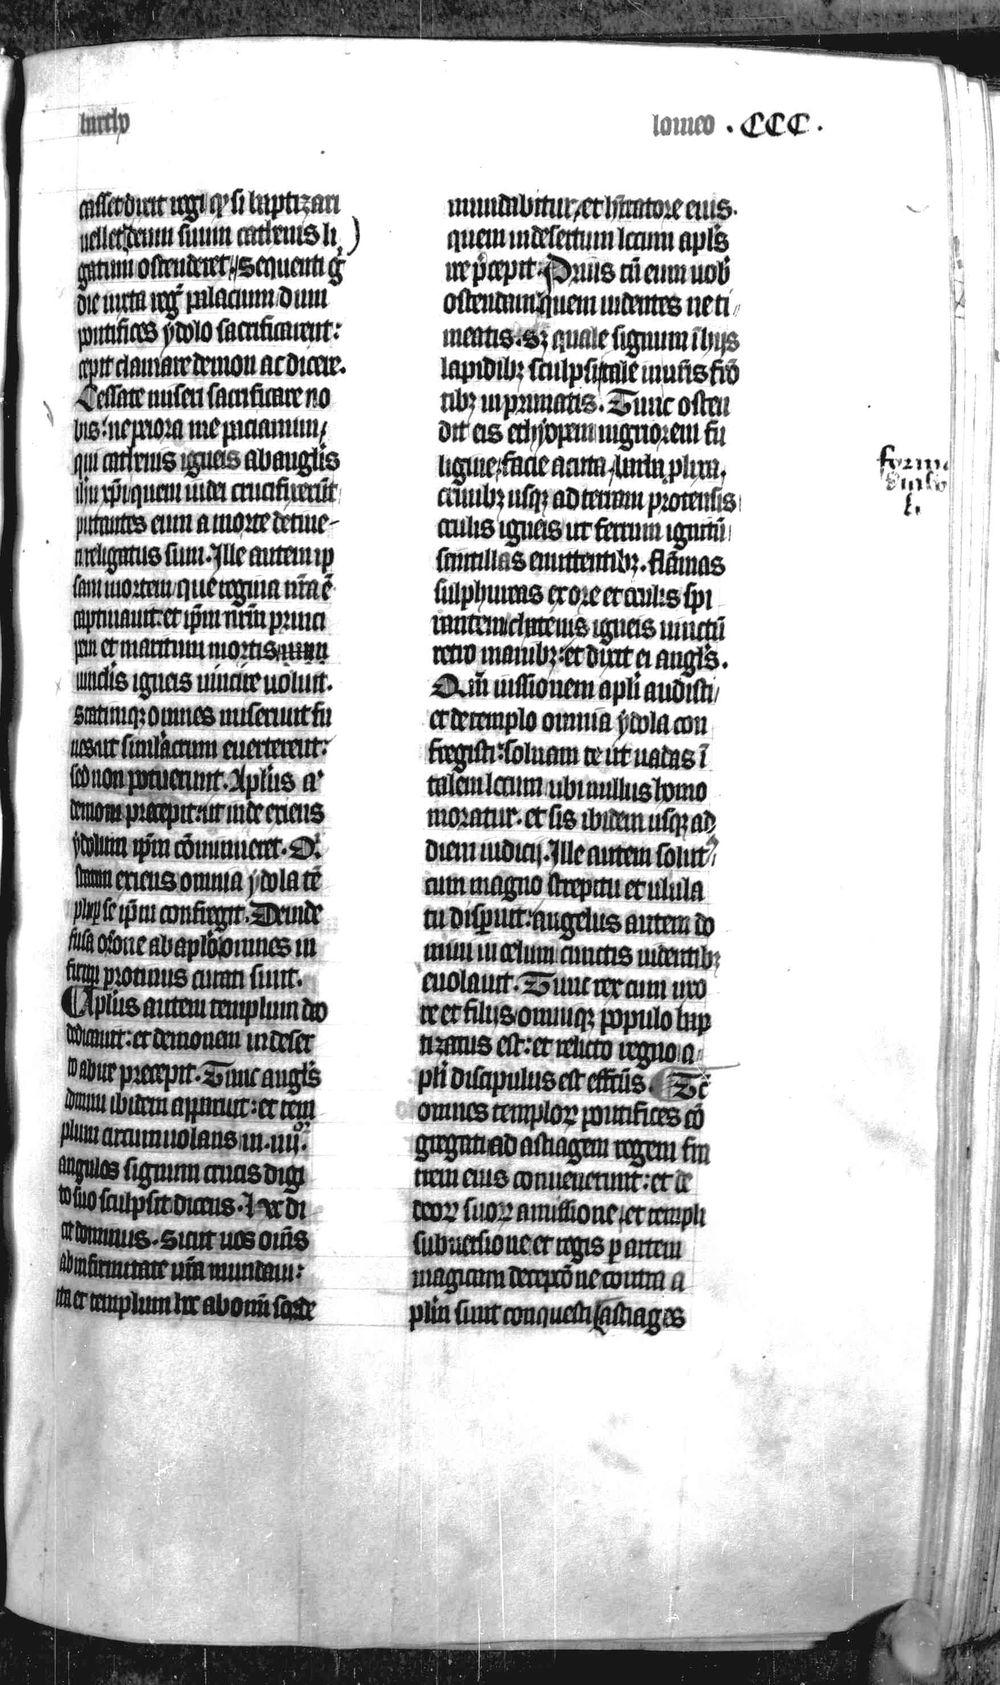 lomeo . CCC .
casset dixit regi qͥ si baptizari
uellet deum suum cathenis li
gatum ostenderet. Sequenti gͦ
die iuxta regͥ palacium dum
pontifices ydolo sacrificarent:
cepit clamare demon ac dicere.
Cessate miseri sacrificare no
bis: ne peiora me paciamini,
qui cathenis igneis ab angl̓is
ih̓u xp̄i quem iudei crucifixerūt
putantes eum a morte detine-
ri religatus sum. Ille autem ip
sam mortem, que regina nr̄a ē
captiuauit: et ip̄m nr̄m princi
pem et maritum mortis
uinclis igneis uincire uoluit.
Statimqz omnes miserunt fu
nes ut simulacrum euerterent:
sed non potuerunt. Apl̓us a̓
demoni precepit: ut inde exiens
ydolum ip̄m cōminueret. Q̓
statim exiens omnia ydola tē
pli per se ip̄m confregit. Deinde
fusa orōne ab aplō omnes in
firmi protinus curati sunt.
Apl̓us autem templum deo
dedicauit: et demonem in deser
to abire precepit. Tunc angl̓s
domini ibidem apparuit: et tem
plum circumuolans in .iiijor.
angulos signum crucis digi
to suo sculpsit dicens. Hec di
cit dominus. Sicut uos om̄s
ab infirmitate ur̄a mundaui:
ita et templum hoc ab om̄i sorde
mundabitur, et h̓itatore eius.
quem in desertum locum apl̓s
ire p̄cepit. Prius tn̄ eum uob̓
ostendam, quem uidentes ne ti
meatis. Sz quale signum ī hijs
lapidibz sculpsi, tale in ur̄is frō
tibz inprimatis. Tunc osten
dit eis ethyopem nigriorem fu
ligine, facie acuta, barba plixa,
crinibz usqz ad terram protensis
oculis igneis ut ferrum ignitū
scintillas emittentibz. flāmas
sulphureas ex ore et oculis spi
rantem, chatenis igneis uinctū
retro manibz: et dixit ei angl̓s.
Qm̄ iussionem apl̓i audisti,
et de templo omnia ydola con
fregisti: soluam te ut uadas ī
talem locum ubi nullus homo
moratur. et sis ibidem usqz ad
diem iudicij. Ille autem solut̓
cum magno strepitu et ulula
tu disparuit: angelus autem do
mini in celum cunctis uidentibz
euolauit. Tunc rex cum uxo
re et filijs omniqz populo bap
tizatus est: et relicto regno a
pl̓i discipulus est effectus Tc̄
omnes templorz pontifices cō
gregati ad astiagem regem fra
trem eius conuenerunt: et de
deorz suorz amissione, et templi
subuersione et regis p artem
magicam deceptōne contra a
pl̓m sunt conquesti. Astiages